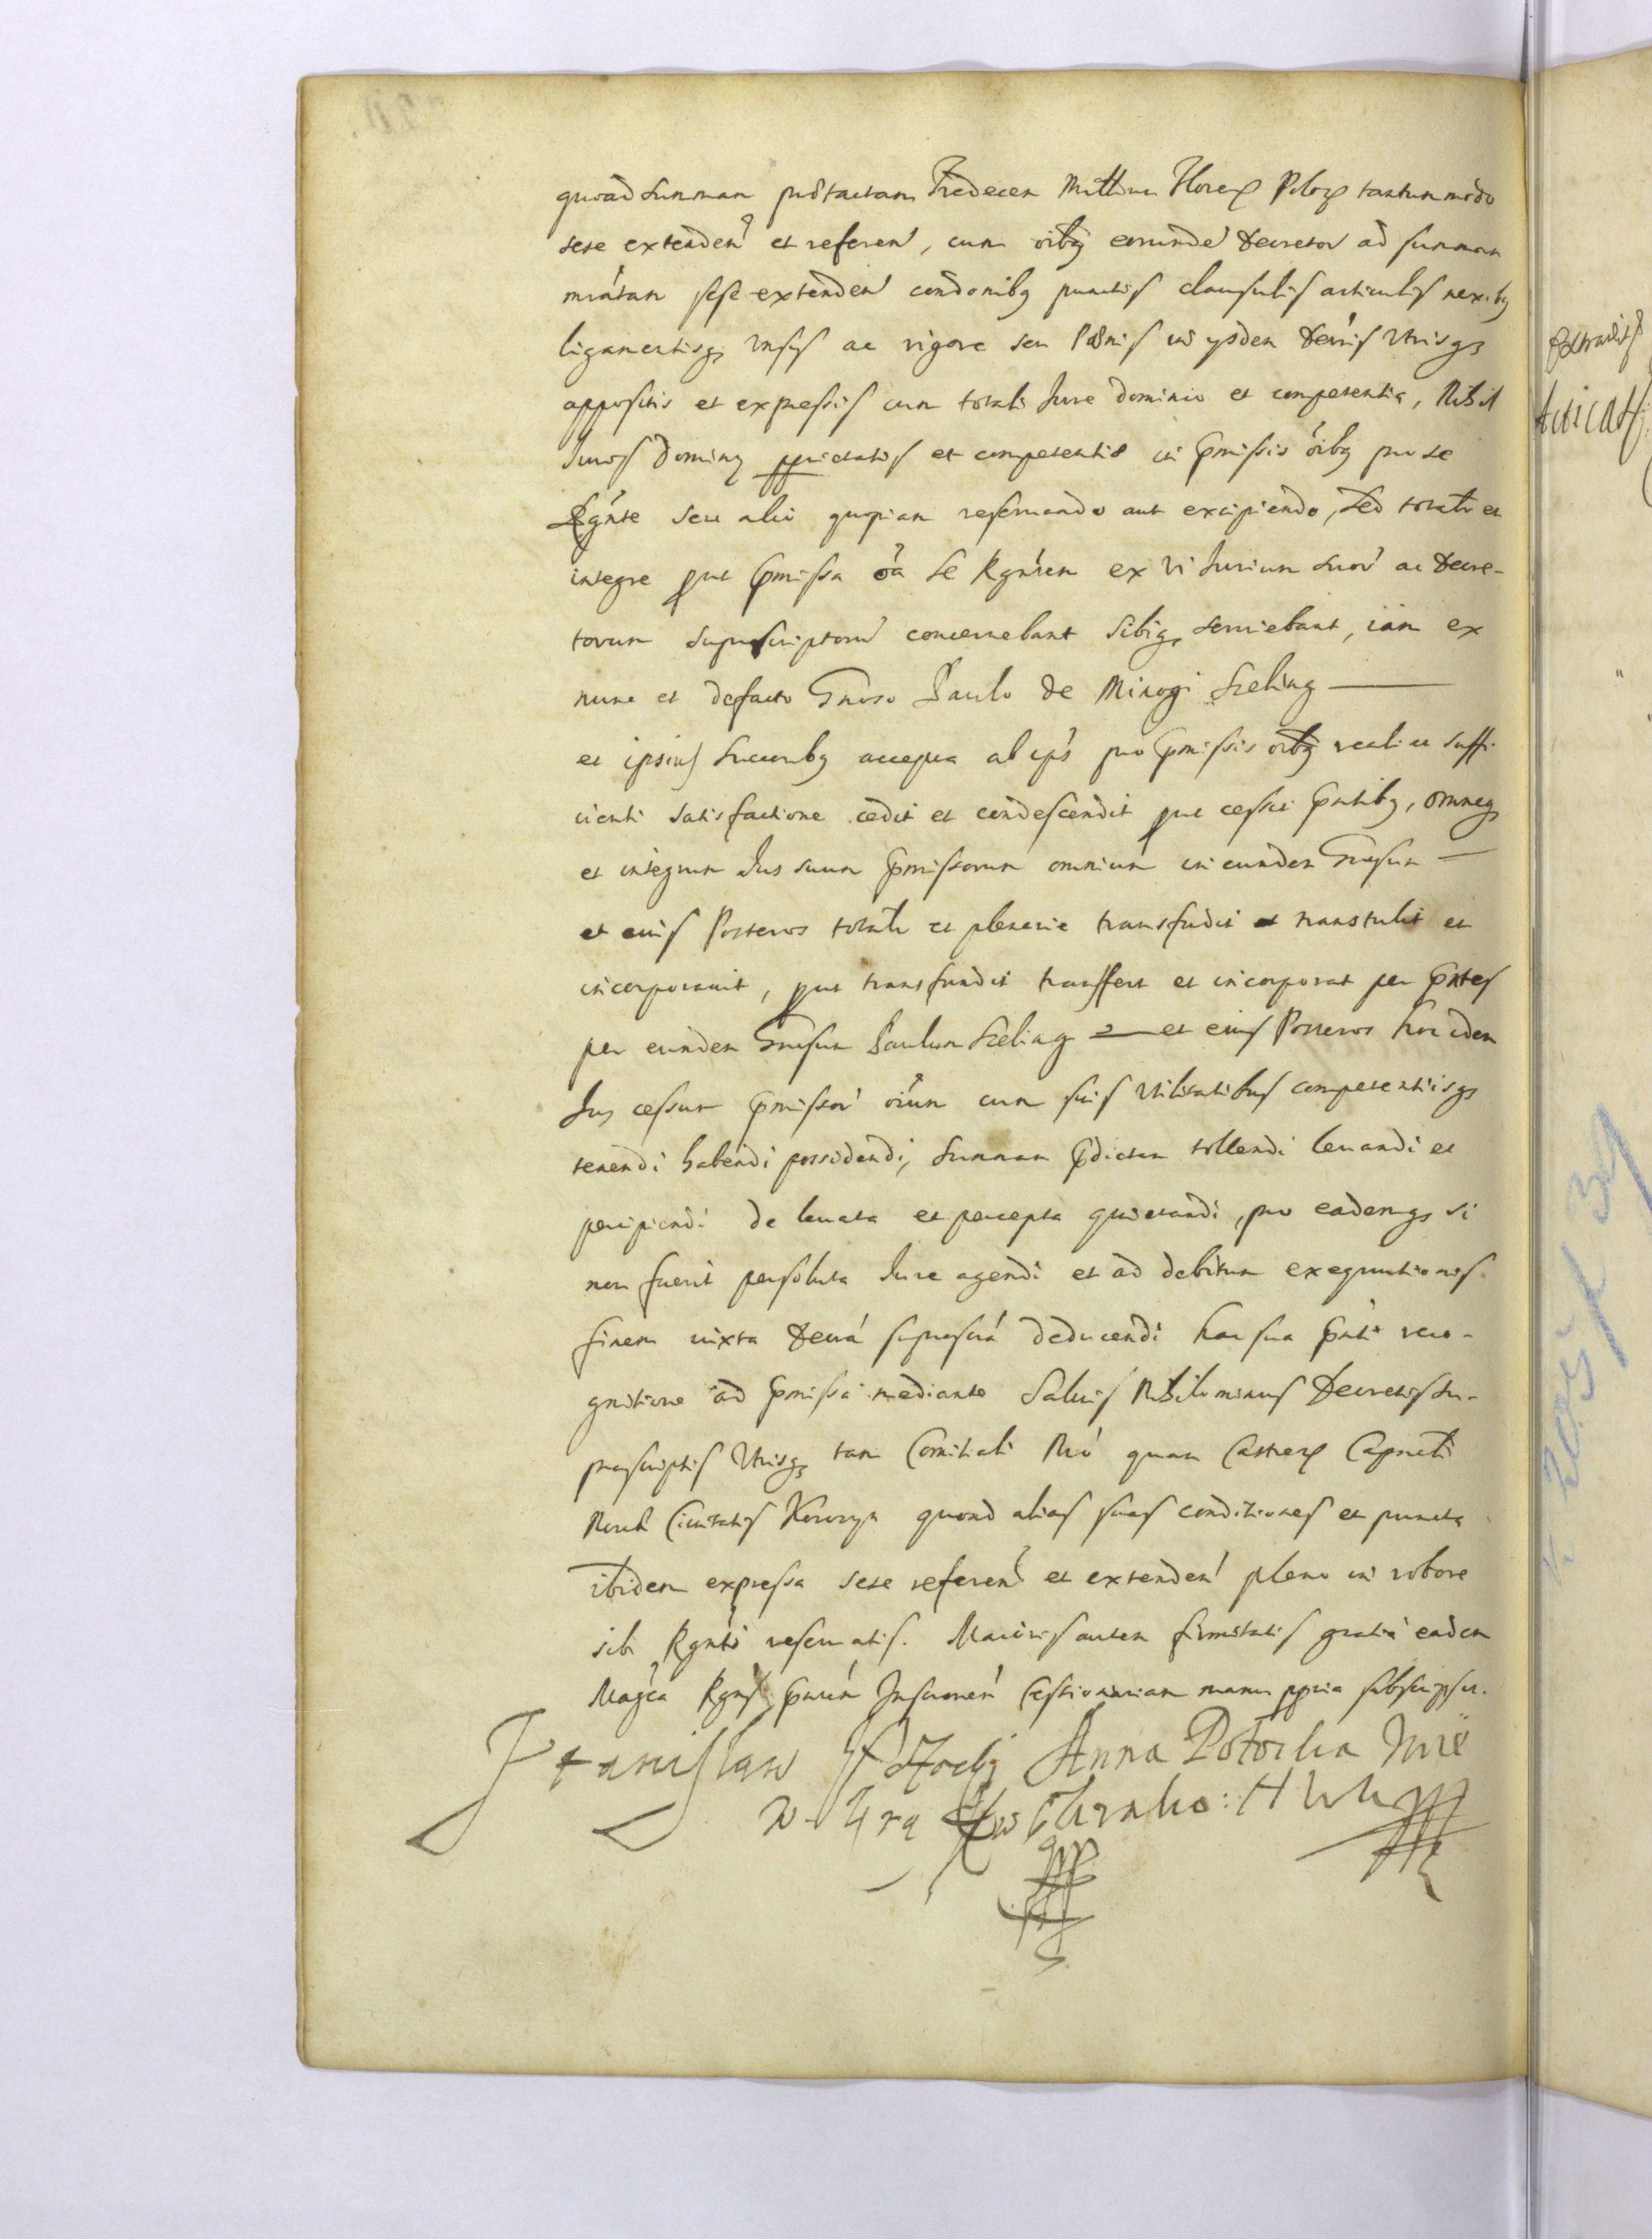 quoad summam prdtactam Tredecem Millium Floren Polon tantummodo
sese extenden et referen, cum oibq eorunde Decretor ad summam
mratam sese extenden condonibq punctis clausulis articulis nexibq
ligamentisq vnsis ac rigore seu Poenis in ysdem Decris Vtrisq
appositis et expressis cum totali Iure dominio et competentia, Nihil
Iuris Dominy pprietatis et competentie in pmissis oibq pro se
Rgnte seu alio quopiam reseruando aut excipiendo, Sed totalr et
integre put pmissa oa se Rgnten ex vi Iurium suor ac Decre-
torum suprascriptorum concernebant sibiq seruiebant, iam ex
nunc et defacto Gnroso Paulo de Mirogi Szeling
et ipsius Succrribq accepta ab ips pro pmissis oibq reali et suffi
cienti satisfactione cedit et condescendit put cessit pntibq, omneq
et integrum Ius suum pmissorum omnium in eundem Gnrosum
et eius Posteros totalr et plenarie transfudit et transtulit et
incorporauit, put transfundit transfert et incorporat per pntes
per eundem Gnrosum Paulum Szeling et eius Posteros hoc idem
Ius cessum pmissor oium cum suis vtilitatibus competentiisq
tenendi habendi possidendi, summam pdictam tollendi leuandi et
percipiendi de leuata et percepta quietandi, pro eademq si
non fuerit persoluta Iure agendi et ad debitum exequutionis
finem iuxta Decra suprascra deducendi hac sua pnti reco-
gnitione ad pmissa mediante Saluis Nihilominus Decretis su-
prascriptis Vtrisq tam Comitiali quam Castren Capneli
Civitatis quoad alias suas conditiones et puncta
ibidem expressa sese referen et extenden pleno in robore
sibi Rgnti reseruatis. Maioris autem firmitatis gratia eadem
Magca Rgns pntem Inscriponem Cessionariam manu ppria subscripsit.
Stanislaw Potocki Anna Potocka